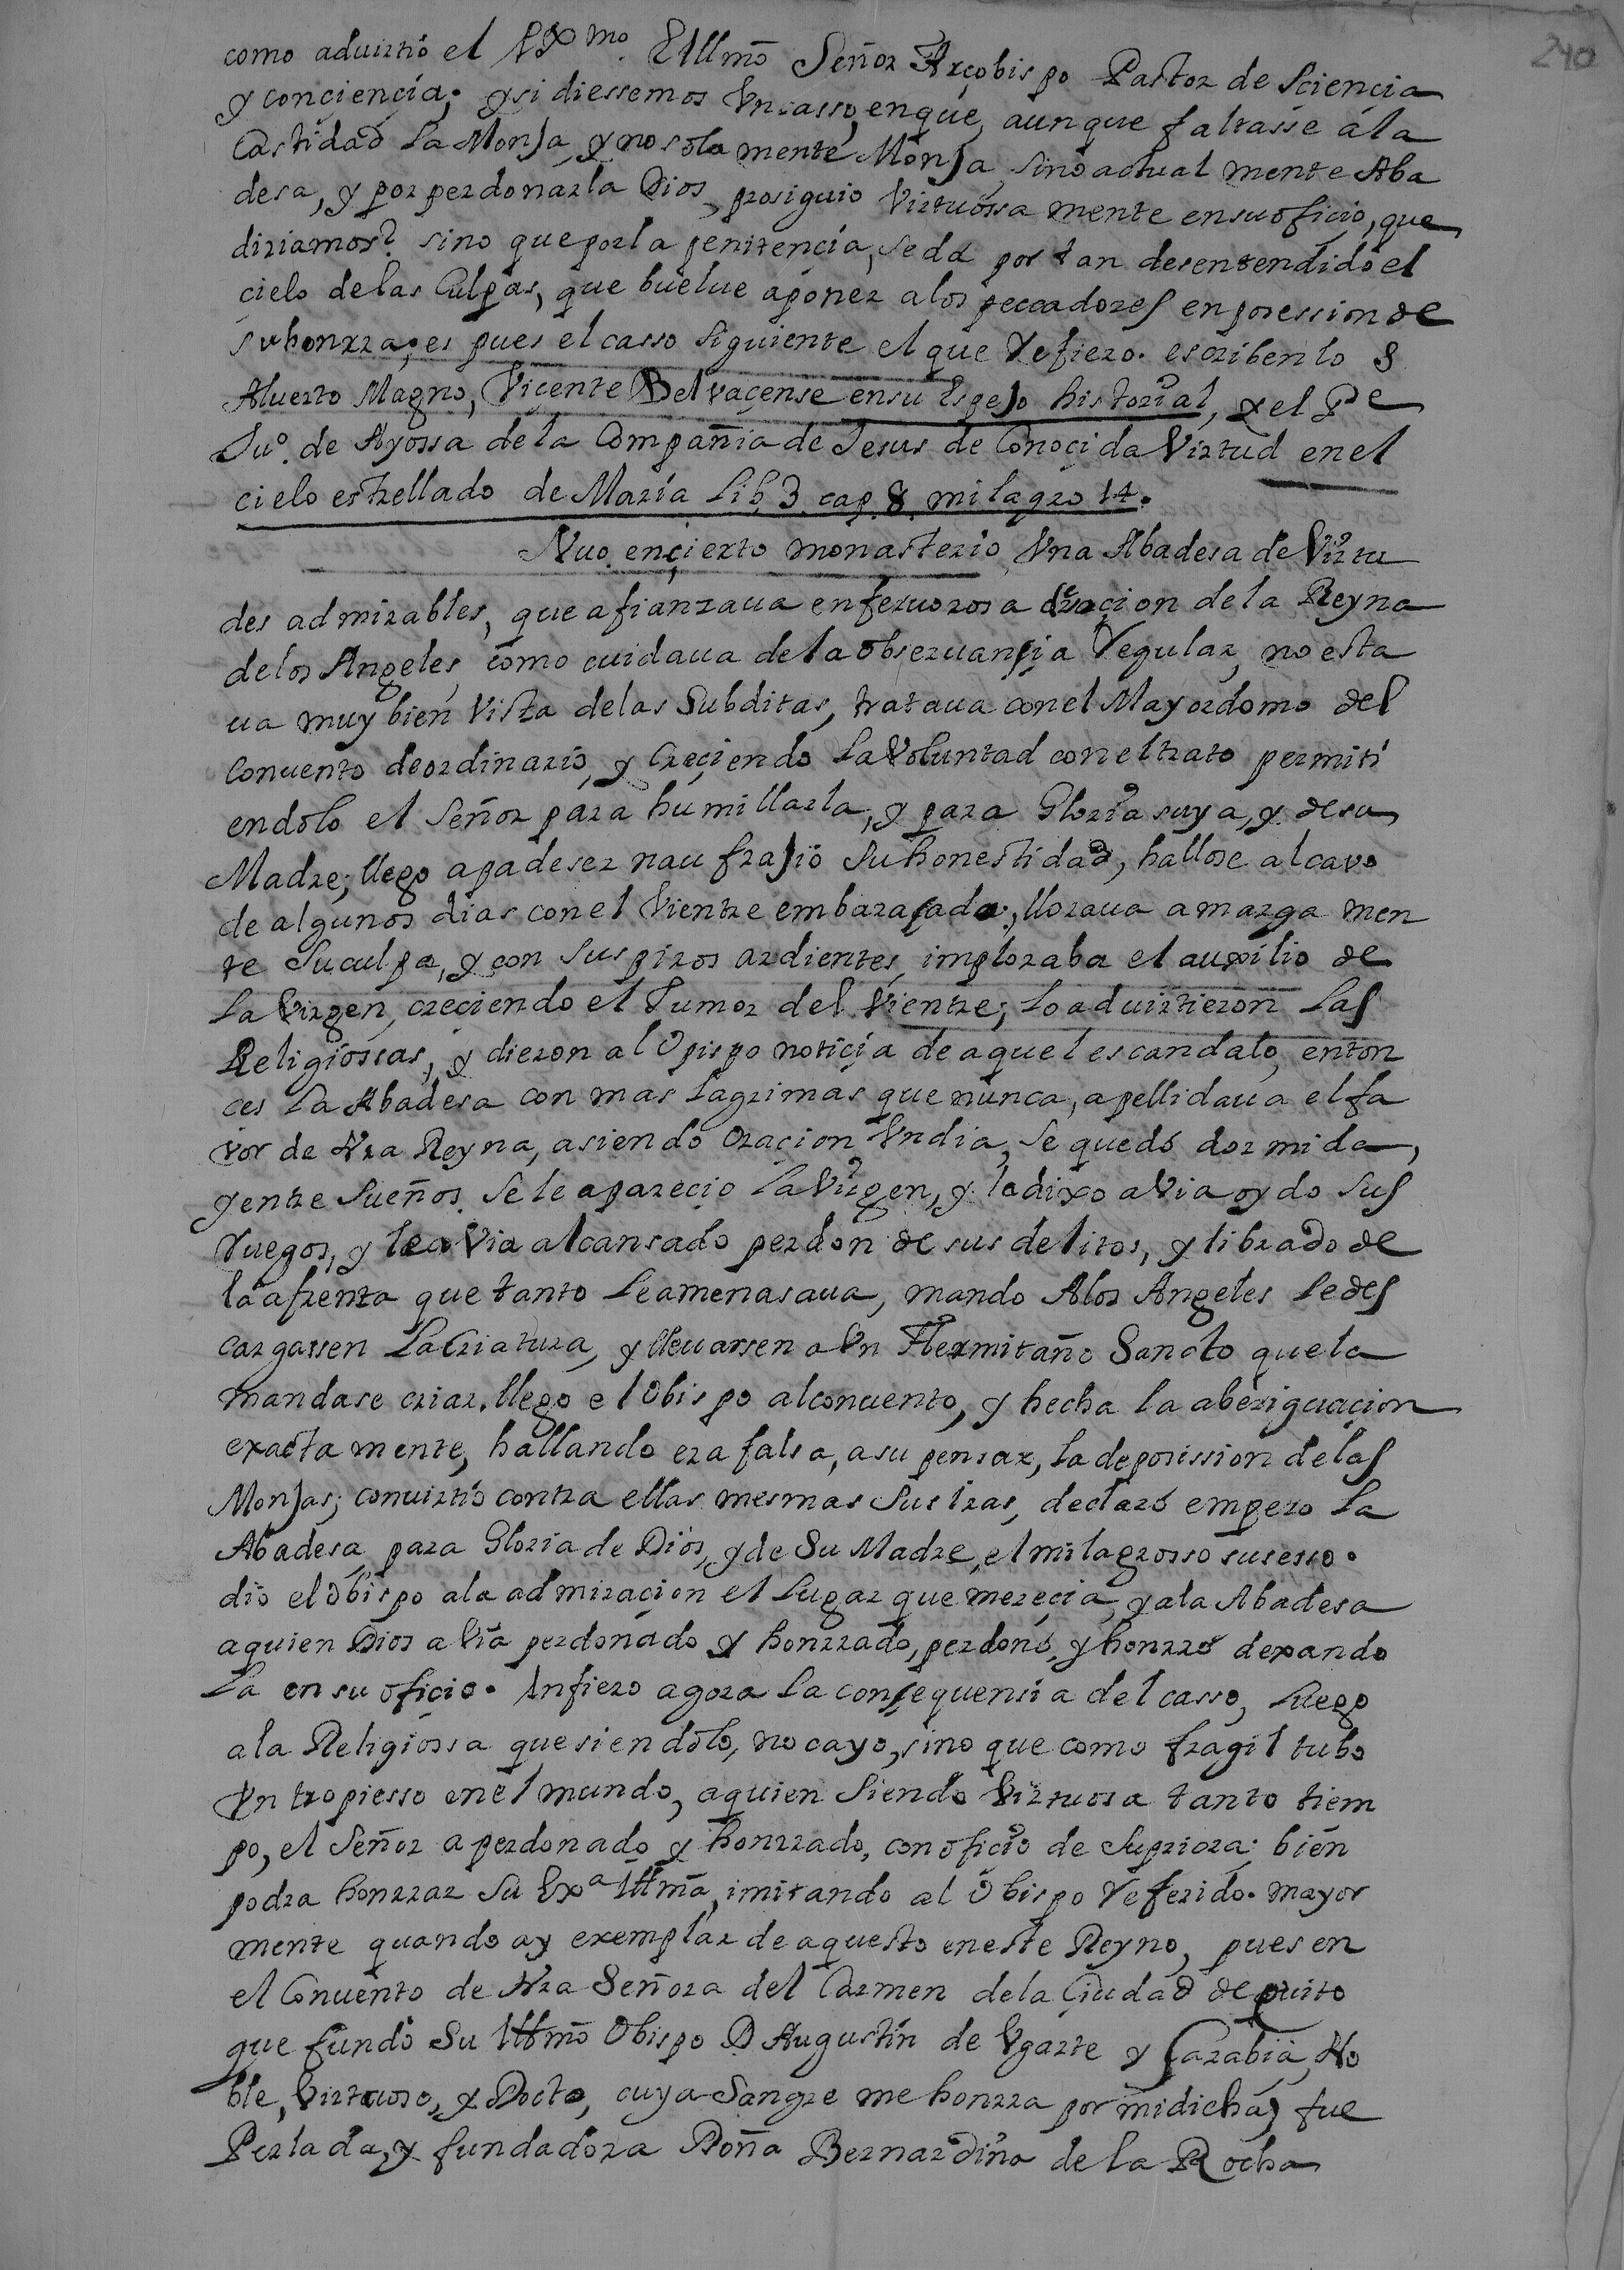 240
como aduirtió el Exmo. E Illmō Señor Arçobispo Pastor de Sciencia
y conçiencia; y si diessemos Vn casso, en que, aunque faltasse á la
Castidad La Monja, y no sola mente Monja, sino actual mente Aba
desa, y por perdonarla Dios, prosiguio Virtuossa mente en su oficio, que
diriamos? sino que por la penitencia, se dá por tan desentendido el
cielo de las Culpas, que buelue a poner a los peccadores en posession de
su honrra; es pues el casso siguiente el que refiero. escribenlo S
Aluerto Magno, Viçente Belvaçense en su Espejo historial, y el Pe
Juo. de Ayossa de la Compañia de Jesus de Conoçida Virtud en el
cielo estrellado de María Lib 3. cap. 8. milagro 14.
Vuo en çierto monasterio Vna Abadesa de Virtu
des admirables, que afianzaua en feruorosa deuoçion de la Reyna
de los Angeles, como cuidaua de la obseruançia regular, no esta
ua muy bien Vista de las Subditas, trataua con el Mayordomo del
Conuento de ordinario, y Creçiendo La Voluntad con el trato permiti
endolo el Señor para humillarla, y para Gloria suya, y de su
Madre; llego a padeser naufrajio su honestidad, hallose al cavo
de algunos dias con el Vientre embaraçado; lloraua amarga men
te su culpa, y con suspiros ardientes, imploraba el auxilio de
La Virgen, creciendo el Tumor del Vientre; lo aduirtieron Las
Religiossas, y dieron al Opispo notiçia de aquel escandalo, enton
ces La Abadesa con mas Lagrimas que nunca, apellidaua el fa
vor de Nra Reyna, asiendo oraçion Vn dia, se quedó dormida,
y entre sueños se le aparecio La Virgen, y le dixo a Via oydo sus
ruegos, y le a Via alcansado perdon de sus delitos, y librado de
la afrenta que tanto Le amenasaua, mando A los Angeles le des
cargassen La Criatura, y lleuassen a Vn Hermitaño Sancto que la
mandase criar. llego el Obispo al conuento, y hecha la aberiguaçion
exacta mente, hallando era falsa, a su pensar, la deposission de las
Monjas; conuirtió contra ellas mesmas sus Iras, declaró empero La
Abadesa para Gloria de Dios, y de Su Madre, el milagrosso susesso.
dió el obispo a la admiraçion el Lugar que mereçia, y a la Abadesa
a quien Dios a Via perdonado y honrrado, perdonó, y honrró dexando
La en su oficio. Infiero agora la consequensia del casso, Luego
a la Religiossa que siendolo, no cayo, sino que como fragil tubo
Vn tropiesso en el mundo, a quien siendo Virtuosa tanto tiem
po, el Señor a perdonado y honrrado, con oficio de Supriora; bien
podra honrrar su Exa Illmā, imitando al Obispo referido. mayor
mente quando ay exemplar de aquesto en este Reyno, pues en
el Conuento de Nra Señora del Carmen de la Çiudad de quito
que fundó Su Illmō Obispo D Augustin de Vgarte y Carabia, No
ble, Virtuoso, y Docto, cuya Sangre me honrra por mi dicha; fue
Perlada, y fundadora Doña Bernardina de la Rocha